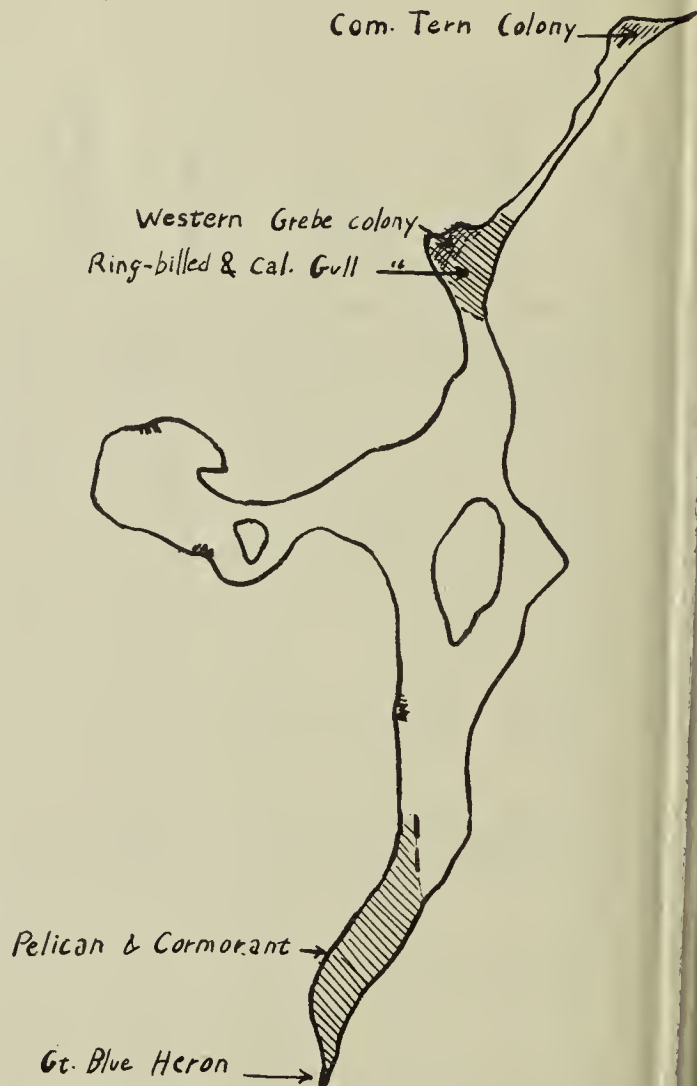 Com. Tern Colony
Western Grebe colony
Ring-billed & Cal. Gull "
Pelican & Cormorant
Gt. Blue Heron